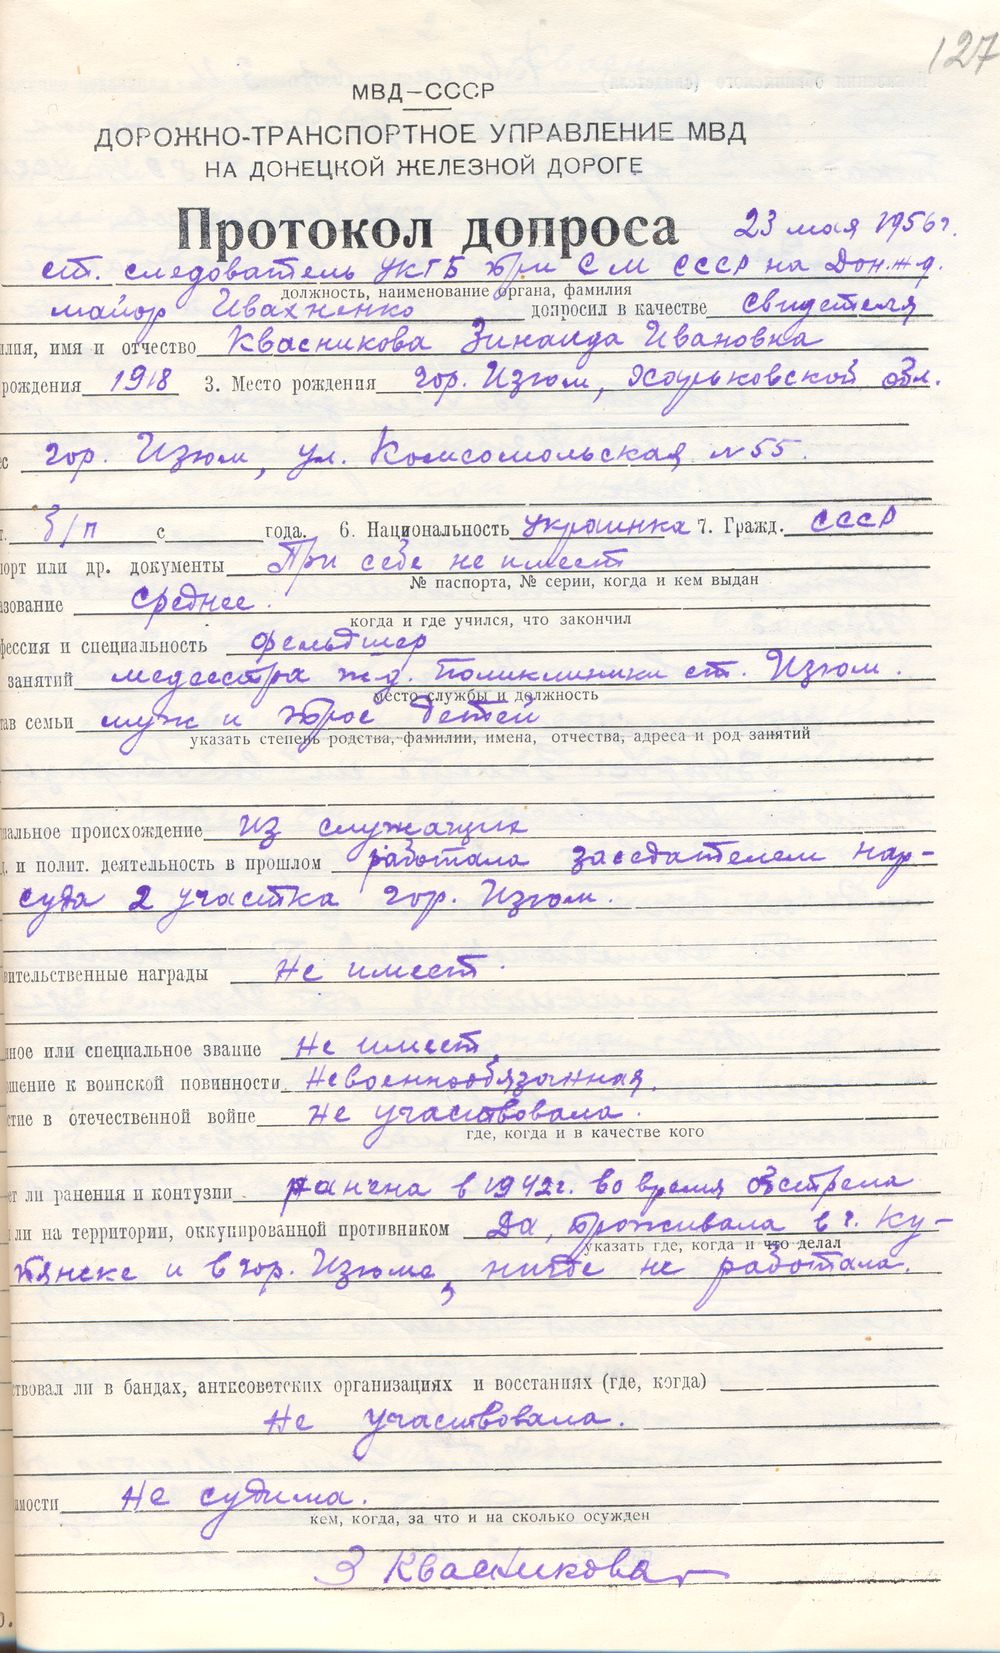 127
МВД—СССР
ДОРОЖНО-ТРАНСПОРТНОЕ УПРАВЛЕНИЕ МВД
НА ДОНЕЦКОЙ ЖЕЛЕЗНОЙ ДОРОГЕ
Протокол допроса 23 мая 1956 г.
ст. следователь УКГБ при СМ СССР на Дон. ж.д.
должность, наименование органа, фамилия
майор Ивахненко допросил в качестве свидетеля
илия, имя и отчество Квасникова Зинаида Ивановна
рождения 1918 3. Место рождения гор. Изюм, Харьковской обл.
ес гор. Изюм, ул. Комсомольская № 55.
т. б/п с года. 6. Национальность украинка 7. Гражд. СССР
порт или др. документы При себе не имеет
№ паспорта, № серии, когда и кем выдан
азование среднее.
когда и где учился, что закончил
фессия и специальность фельдшер
занятий медсестра ж.д. поликлиники ст. Изюм.
место службы и должность
тав семьи муж и трое детей
указать степень родства, фамилии, имена, отчества, адреса и род занятий
иальное происхождение из служащих
. и полит. деятельность в прошлом работала заседателем нар-
суда 2 участка гор. Изюм.
вительственные награды Не имеет.
нное или специальное звание Не имеет
ошение к воинской повинности Невоеннообязанная.
стие в отечественной войне Не участвовала.
где, когда и в качестве кого
ет ли ранения и контузии ранена в 1942 г. во время обстрела
ли на территории, оккупированной противником Да, проживала в г. Ку-
указать где, когда и что делал
пянске и в гор. Изюме, нигде не работала.
ствовал ли в бандах, антисоветских организациях и восстаниях (где, когда)
Не участвовала.
имости Не судима.
кем, когда, за что и на сколько осужден
З Квасникова